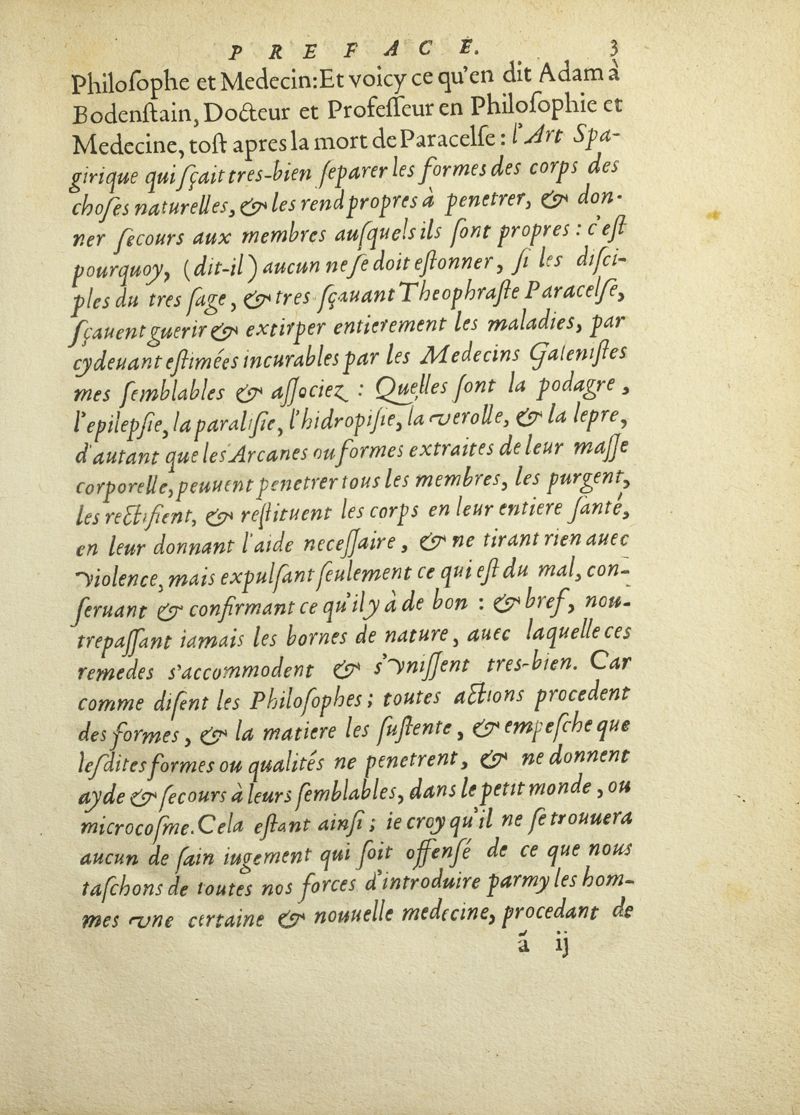 PREFACE. 3
Philoſophe et Medecin:Et voicy ce qu'en dit Adam à
Bodenſtain, Docteur et Profeſſeur en Philoſophie et
Medecine, toſt apres la mort de Paracelſe : l'Art Spa-
girique qui ſçait tres-bien ſeparer les formes des corps des
choſes naturelles, & les rend propres à penetrer, & don-
ner ſecours aux membres auſquels ils ſont propres : c'eſt
pourquoy, (dit-il) aucun ne ſe doit eſtonner, ſi les diſci-
ples du tres ſage, & tres ſçauant Theophraſte Paracelſe,
ſçauent guerir & extirper entierement les maladies, par
cydeuant eſtimées incurables par les Medecins Galeniſtes
mes ſemblables & aſſociez : Quelles ſont la podagre,
l'epilepſie, la paraliſie, l'hidropiſie, la verolle, & la lepre,
d'autant que les Arcanes ou formes extraites de leur maſſe
corporelle, peuuent penetrer tous les membres, les purgent,
les rectifient, & reſtituent les corps en leur entiere ſanté,
en leur donnant l'aide neceſſaire, & ne tirant rien auec
violence, mais expulſant ſeulement ce qui eſt du mal, con-
ſeruant & confirmant ce qu'il y à de bon : & bref, nou-
trepaſſant iamais les bornes de nature, auec laquelle ces
remedes s'accommodent & s'vniſſent tres-bien. Car
comme diſent les Philoſophes ; toutes actions procedent
des formes, & la matiere les ſuſtente, & empeſche que
leſdites formes ou qualités ne penetrent, & ne donnent
ayde & ſecours à leurs ſemblables, dans le petit monde, ou
microcoſme. Cela eſtant ainſi ; ie croy qu'il ne ſe trouuera
aucun de ſain iugement qui ſoit offenſé de ce que nous
taſchons de toutes nos forces d'introduire parmy les hom-
mes vne certaine & nouuelle medecine, procedant de
ã ij